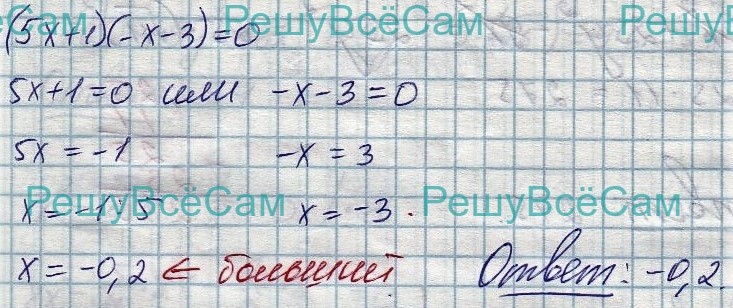 РешуВсёСам РешуВсёСам
(5x+1)(-x-3)=0
5x+1=0 или -x-3=0
5x=-1 -x=3
РешуВсёСам РешуВсёСам
x=-1:5 x=-3.
x=-0,2 ← больший Ответ: -0,2.